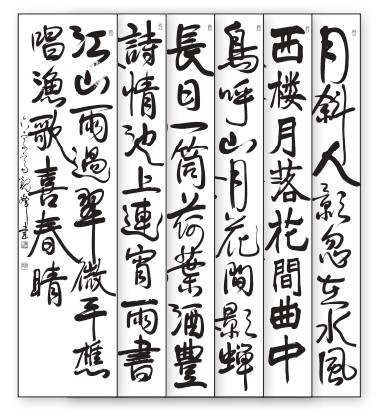 月斜人影忽在水風
西楼月落花間曲中
鳥呼山月花間影蝉
長日一筒荷葉酒豐
詩情池上連宵雨書
江山雨過翠微平樵
唱漁歌喜春晴